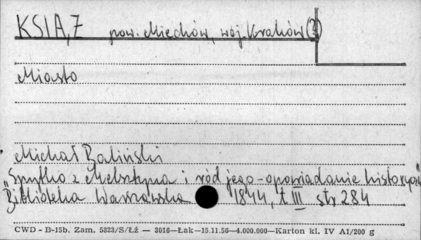 KSIĄŻ pow. Miechów, woj. Kraków (?)
Miasto
Michał Baliński
"Spytko z Melsztyna i ród jego - opowiadanie historyczn
Biblioteka Warszawska 1844, t III str 284
CWD - B-15b. Zam. 5823/S/Łź — 3016—Łak—15.11.56—4.000.000—Karton kl. IV A1/200 g